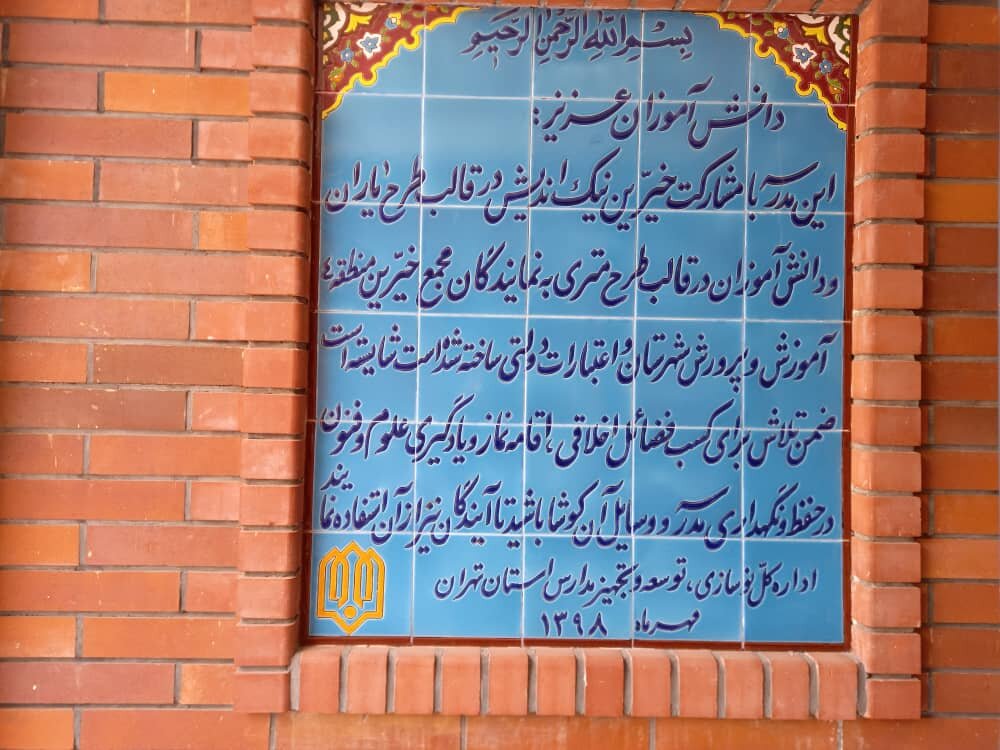 بسم الله الرحمن الرحیم
دانش آموزان عزیز:
این مدرسه با مشارکت خیّرین نیک اندیش در قالب طرح یاران
و دانش آموزان در قالب طرح متری به نمایندگان مجمع خیّرین منطقه ٤
آموزش و پرورش شهرستان و اعتبارات دولتی ساخته شده است شایسته است
ضمن تلاش برای کسب فضائل اخلاقی، اقامه نماز و یادگیری علوم و فنون
در حفظ و نگهداری مدرسه و وسایل آن کوشا باشید تا آیندگان نیز از آن استفاده نمایند
اداره کلّ نوسازی، توسعه و تجهیز مدارس استان تهران
مهرماه ۱۳۹۸